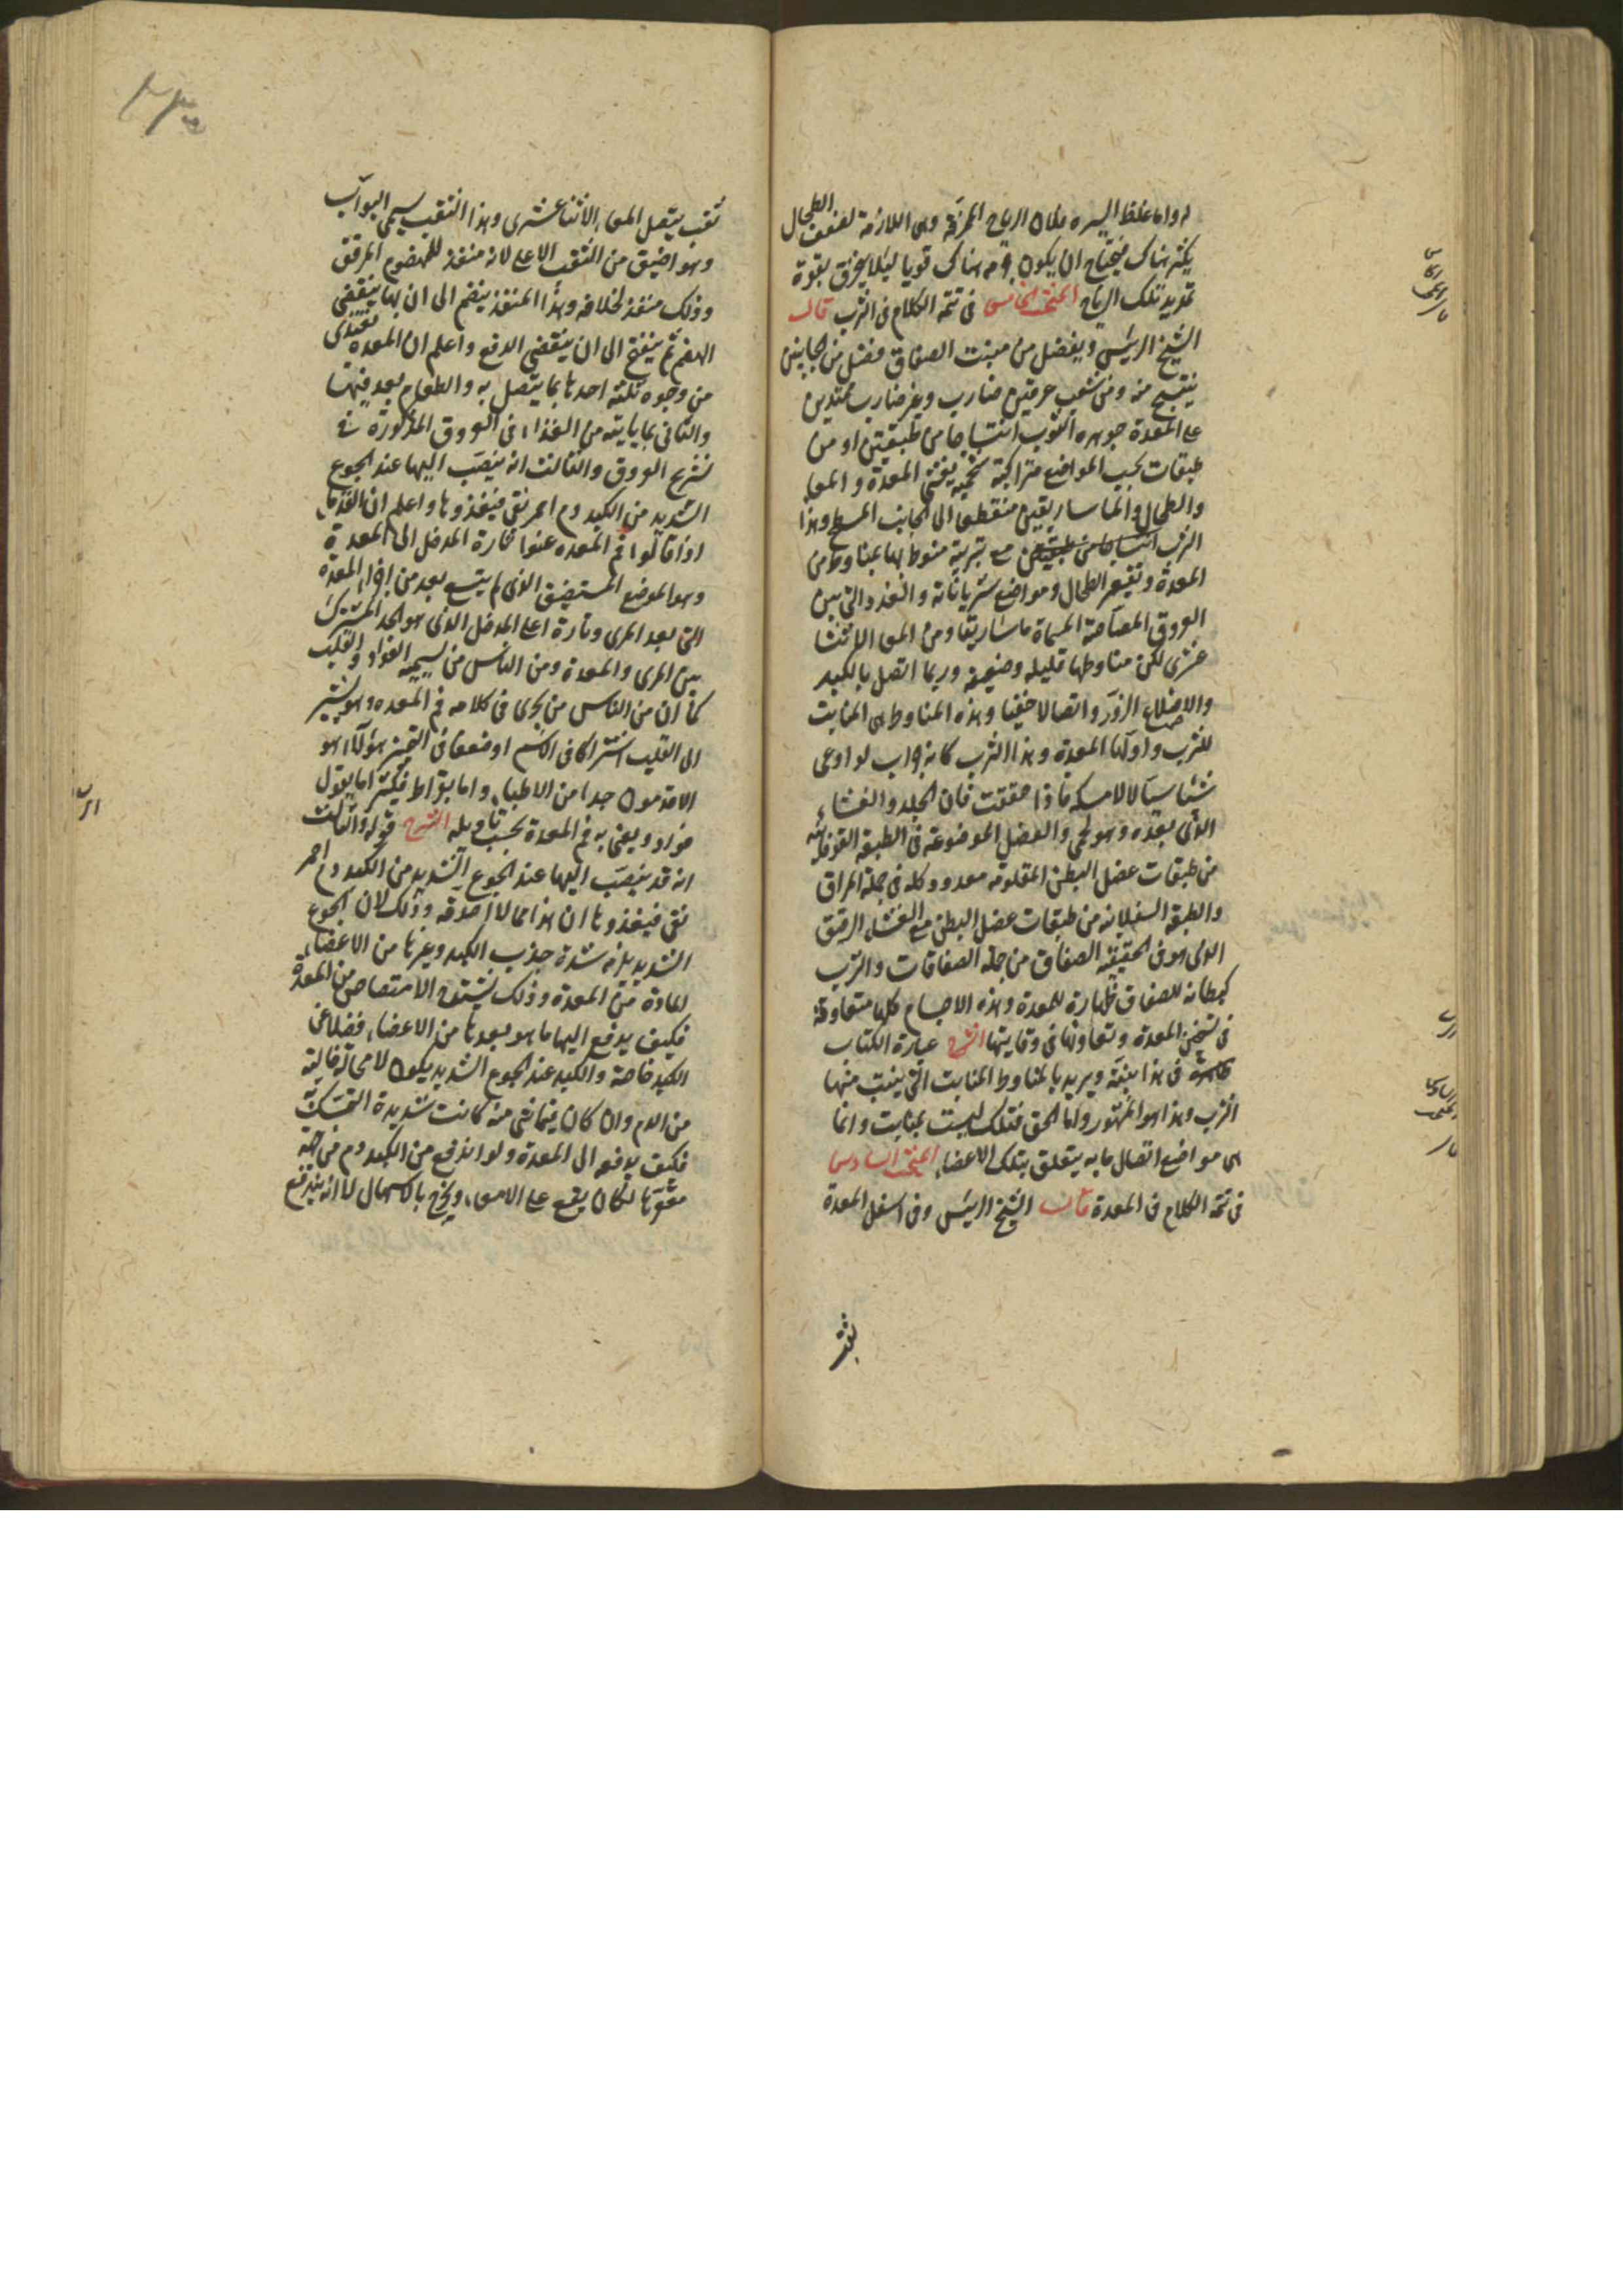 واما غلظ اليسره فلان الرياح الممزقة وهى اللازمة لضعف الطحال
يكثر هناك فيحتاج ان يكون جرمه هناك قويا ليلا ينخرق بقوة
تمديد تلك الرياح المبحث الخامس فى تتمة الكلام فى الثرب قال
الشيخ الرئيس ويفضل من منبت الصفاق فضل من الجانبين
ينتسج منه ومن شعب عرقين ضارب وغير ضارب ممتدين
على المعدة جوهره الثوب انتساجا من طبقتين او من
طبقات بحسب المواضع متراكبة شحمية يغشى المعدة والمعا
والطحال والماساريقين منقطعا الى الجانب المسطح وهذا
الثرب مع تثربه منوط بها بمناوط من
المعدة وتقعير الطحال ومواضع شرياناته والغدد التى بين
العروق المصاصة المسماة ماساريقا ومن المعا الاثنا
عشرى لكن مناوطها قليلة وضعيفة وربما اتصل بالكبد
والاضلاع الزور اتصالا خفيا وهذه المناوط هى المنابت
للثرب واولها المعدة وهذا الثرب كانه جراب لو اوعى
شيئا سيالا لامسكه فاذا حققت فان الجلد والغشاء
الذى بعده وهو لحمى والعضل الموضوعة فى الطبقة الفوقانية
من طبقات عضل البطن المقلومة معدود كله فى جملة المراق
والطبقة السفلانية من طبقات عضل البطن مع الغشاء الرقيق
الذى هو فى الحقيقة الصفاق من جملة الصفاقات والثرب
كبطانة للصفاق ظهارة للمعدة وهذه الاجسام كلها متعاونة
فى تسخين المعدة وتعاونها فى وقايتها الشرح عبارة الكتاب
ظاهرة فى هذا بينة ويريد بالمناوط المنابت التى ينبت منها
الثرب وهذا هو المشهور واما الحق فتلك ليست بمنابت وانما
هى مواضع اتصال ما به يتعلق بتلك الاعضاء المبحث السادس
فى تتمة الكلام فى المعدة قال الشيخ الرئيس وفى اسفل المعدة
ثقب
ثقب يتصل المعا الاثنا عشرى وهذا الثقب يسمى البواب
وهو اضيق من الثقب الاعلى لانه منفذ للمهضوم المرقق
وذلك منفذ لخلافه وهذا المنفذ ينضم الى ان يقضى
الهضم ثم ينفتح الى ان ينقضى الدفع واعلم ان المعدة تغتذى
من وجوه ثلثة احدها بما يتصل به والطعام يعد فيها
والثانى بما ياتيه من الغذاء فى العروق المذكورة فى
تشريح العروق والثالث انه ينصب اليها عند الجوع
الشديد من الكبد دم احمر نقى فيغذوها واعلم ان القدما
اذا قالوا فم المعدة عنوا تارة المدخل الى المعدة
وهو الموضع المستضيق الذى لم يتسع بعد من اجزاء المعدة
التى بعد المرى وتارة اعلى المدخل الذى هو الحد المشترك
بين المرى والمعدة ومن الناس من يسميه الفؤاد والقلب
كما ان من الناس من يجرى فى كلامه فم المعدة وهو يشير
الى القلب اشتراكا فى الاسم او ضعفا فى التمييز هؤلاء هو
الاقدمون جدا من الاطباء واما بقراط فكثيرا ما يقول
فؤاد ويعنى به فم المعدة بحسب تاويله الشرح قوله والثالث
انه قد ينصب اليها عند الجوع الشديد من الكبد دم احمر
نقى فيغذوها ان هذا مما لا اصدقه وذلك لان الجوع
الشديد يلزمه شدة جذب الكبد وغيرها من الاعضاء
لمادة من المعدة وذلك يشتد الامتصاص من المعدة
فكيف يدفع اليها ما هو بعدها من الاعضاء فضلا عن
الكبد خاصة والكبد عند الجوع الشديد يكون لا محالة خالية
من الدم وان كان فيها شى منه كانت شديدة التمسك به
فكيف يدفعه الى المعدة ولو اندفع من الكبد دم من جهة
مقعرها لكان يقع على الامعاء ويخرج بالاسهال لا انه يندفع